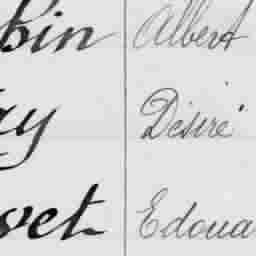 bin Albert
ay Désiré
vet Edoua